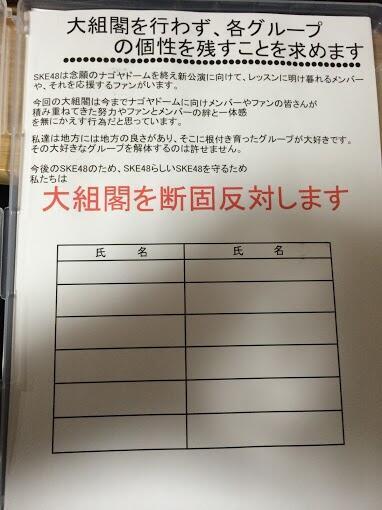 大組閣を行わず、各グループ
の個性を残すことを求めます
SKE48は念願のナゴヤドームを終え新公演に向けて、レッスンに明け暮れるメンバー
や、それを応援するファンがいます。
今回の大組閣は今までナゴヤドームに向けメンバーやファンの皆さんが
積み重ねてきた努力やファンとメンバーの絆と一体感
を無にかえす行為だと思っています。
私達は地方には地方の良さがあり、そこに根付き育ったグループが大好きです。
その大好きなグループを解体するのは許せません。
今後のSKE48のため、SKE48らしいSKE48を守るため
私たちは
大組閣を断固反対します
氏 名 氏 名